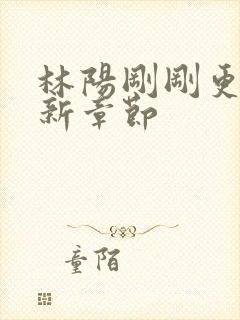 林陽剛剛更
新章節
童陌